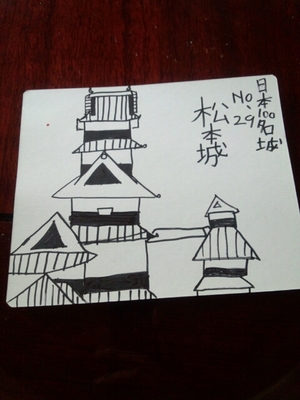 日本100名城
No.29
松本城